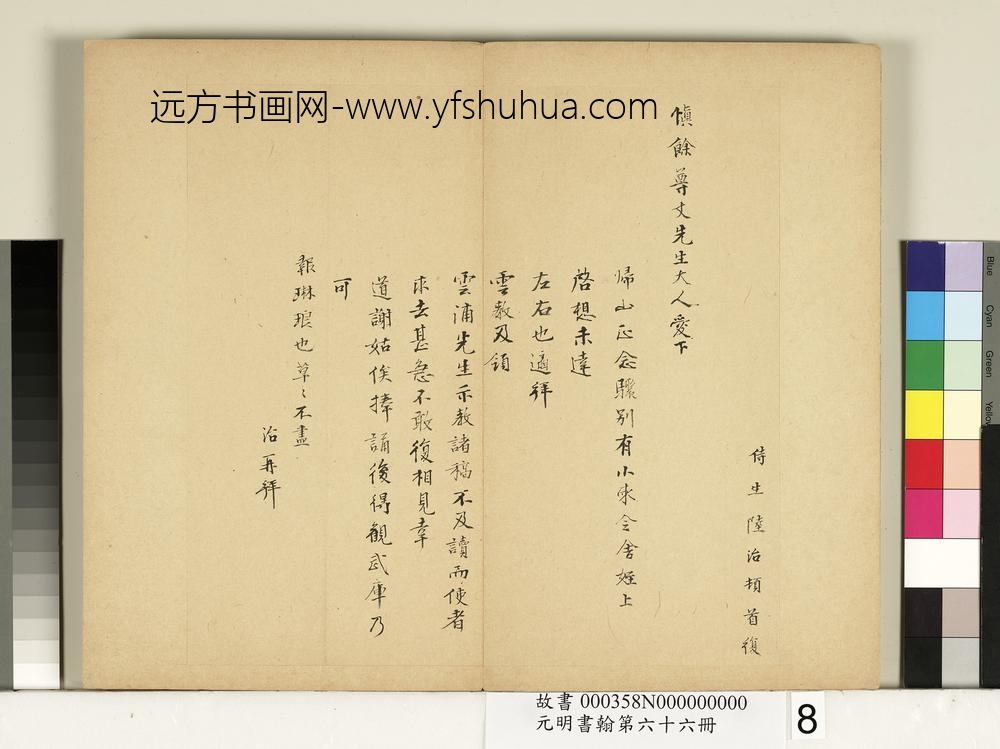 远方书画网-www.yfshuhua.com
侍生陸治頓首復
慎餘尊丈先生大人愛下
歸山正念驟別有小柬令舍姪上
啓想未達
左右也適拜
雲教及領
雲浦先生示教諸稿不及讀而使者
求去甚急不敢復相見幸
道謝姑俟捧誦後得觀武庫乃
可
報琳琅也草〻不盡
治再拜
故書 000358N000000000
元明書翰第六十六冊
8
Blue
Cyan
Green
Yellow